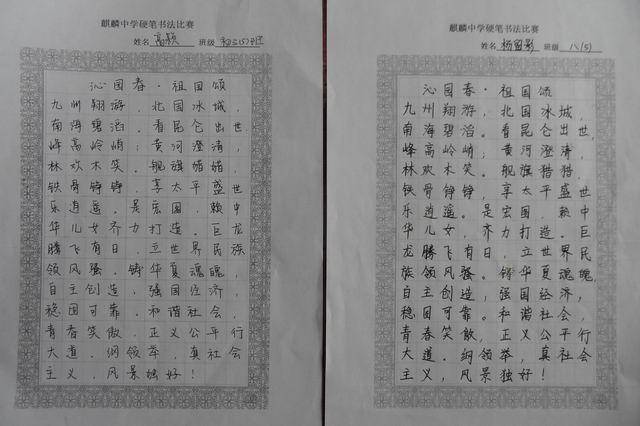 麒麟中学硬笔书法比赛
姓名 高颖 班级
沁园春·祖国颂
九州翔游，北国冰城，
南海碧滔。看昆仑出世，
峰高岭峭；黄河澄清，
林欢木笑。舰旗猎猎，
铁骨铮铮，享太平盛世
乐逍遥。是宏国，赖中
华儿女齐力打造。巨龙
腾飞有日，立世界民族
领风骚。铸华夏魂魄，
自主创造，强国经济，
稳固可靠。和谐社会，
青春笑傲，正义公平行
大道。纲领举，真社会
主义，风景独好！
麒麟中学硬笔书法比赛
姓名 杨留影 班级 八(5)
沁园春·祖国颂
九州翔游，北国冰城，
南海碧滔。看昆仑出世，
峰高岭峭；黄河澄清，
林欢木笑。舰旗猎猎，
铁骨铮铮，享太平盛世
乐逍遥。是宏国，赖中
华儿女，齐力打造。巨
龙腾飞有日，立世界民
族领风骚。铸华夏魂魄，
自主创造，强国经济，
稳固可靠。和谐社会，
青春笑傲，正义公平行
大道。纲领举，真社会
主义，风景独好！